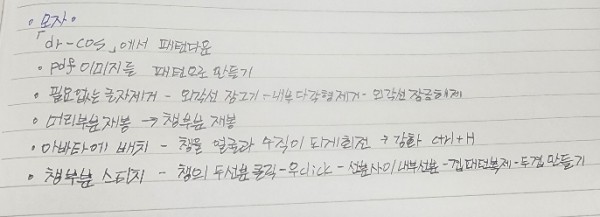 • 모자 •
「dr-cos」에서 패턴다운
• pdf 이미지를 패턴으로 만들기
• 필요없는 글자제거 - 외각선 잠그기 - 내부다각형제거 - 외각선 잠금해제
• 머리부분재봉 → 챙부분 재봉
• 아바타에 배치 - 챙을 얼굴과 수직이 되게회전 → 강화 ctrl+H
• 챙부분 스티치 - 챙의 두선분클릭 - 우click - 선분사이내부선분 - 겹패턴복제 - 두겹 만들기